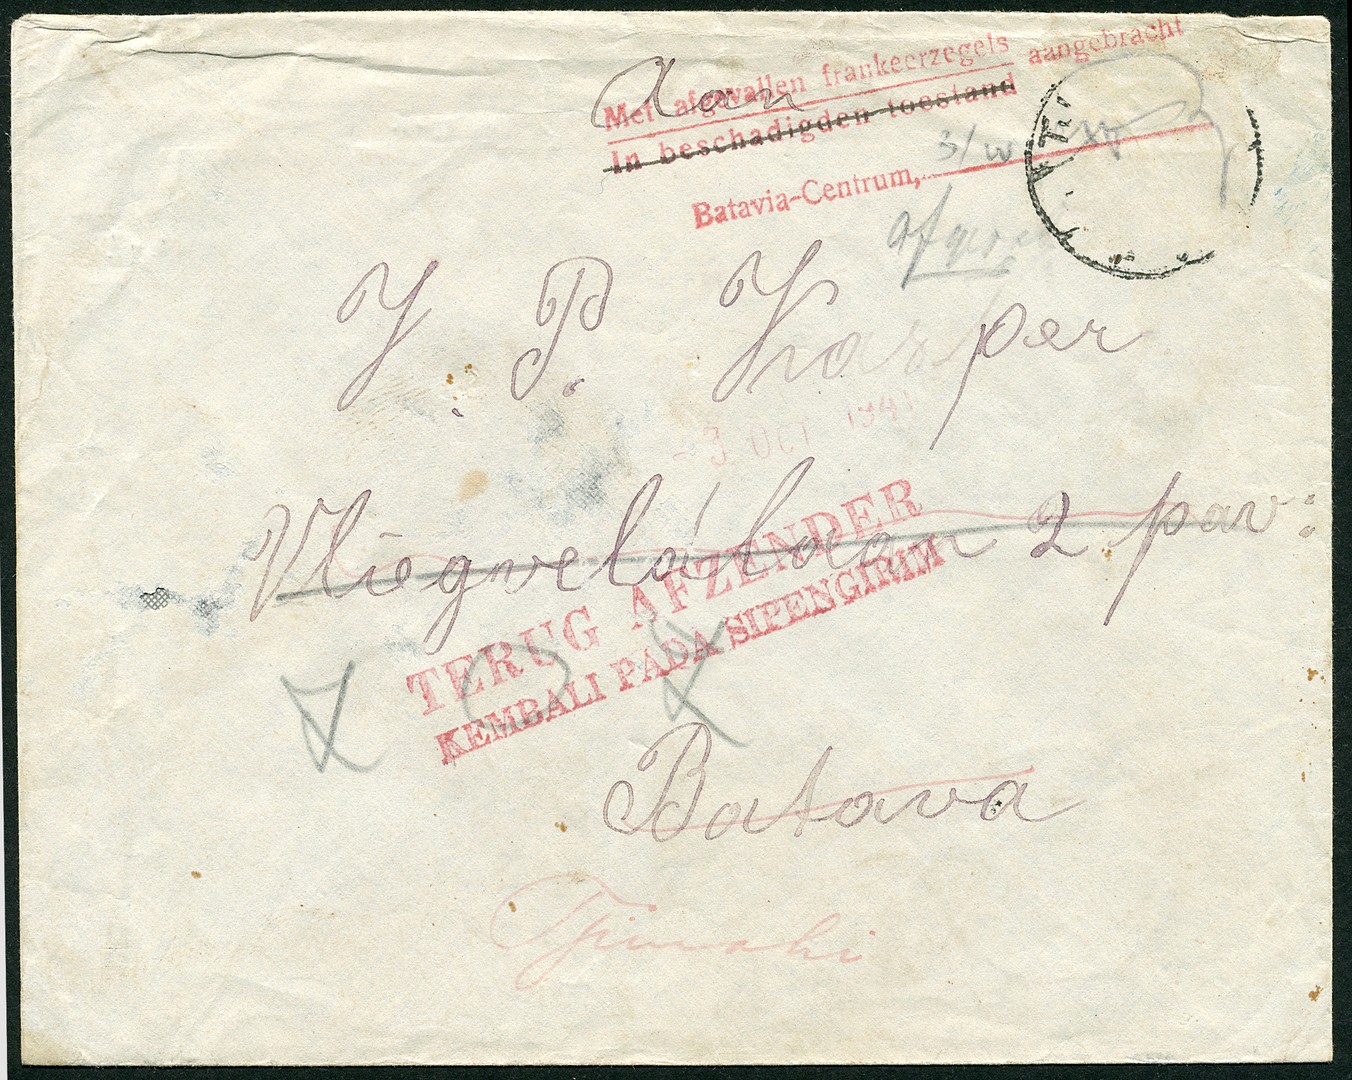 Aan
Met afgevallen frankeerzegels aangebracht
In beschadigden toestand
Batavia-Centrum, 3/
J. P. Kasper
- 3 OCT 1941
Vliegveldlaan 2 pav:
TERUG AFZENDER
KEMBALI PADA SIPENGIRIM
Batava
Tjimahi